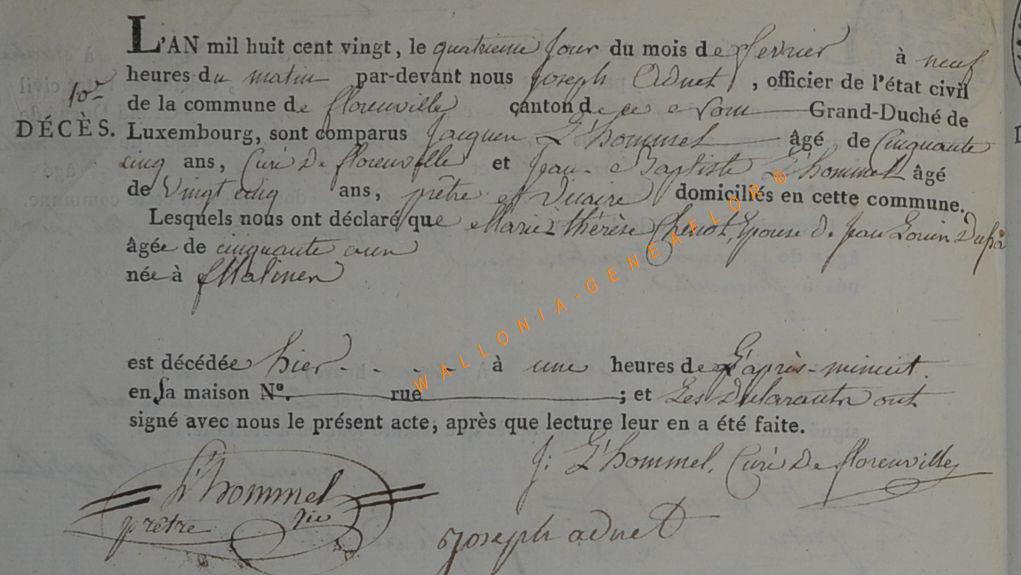 L'AN mil huit cent vingt, le quatrieme Jour du mois de fevrier à neuf
heures du matin par-devant nous Joseph Adnet, officier de l'état civil
10me
de la commune de florenville canton de ce Nom Grand-Duché de
DÉCÈS. Luxembourg, sont comparus Jacques L'hommel âgé de Cinquante
cinq ans, Curé De florenville et Jean-Baptiste L'hommel âgé
de Vingt cinq ans, prêtre et Vicaire domiciliés en cette commune.
Lesquels nous ont déclaré que Marie thérèse Epouse de Jean Louis
âgée de cinquante ans
née à Malines
est décédée hier à une heures de L'après-minuit.
en sa maison N°. rue ; et Les Déclarants ont
signé avec nous le présent acte, après que lecture leur en a été faite.
J: L'hommel, Curé De florenville
L'hommel
prêtre vic
Joseph adnet
WALLONIA-GENEALOGIE